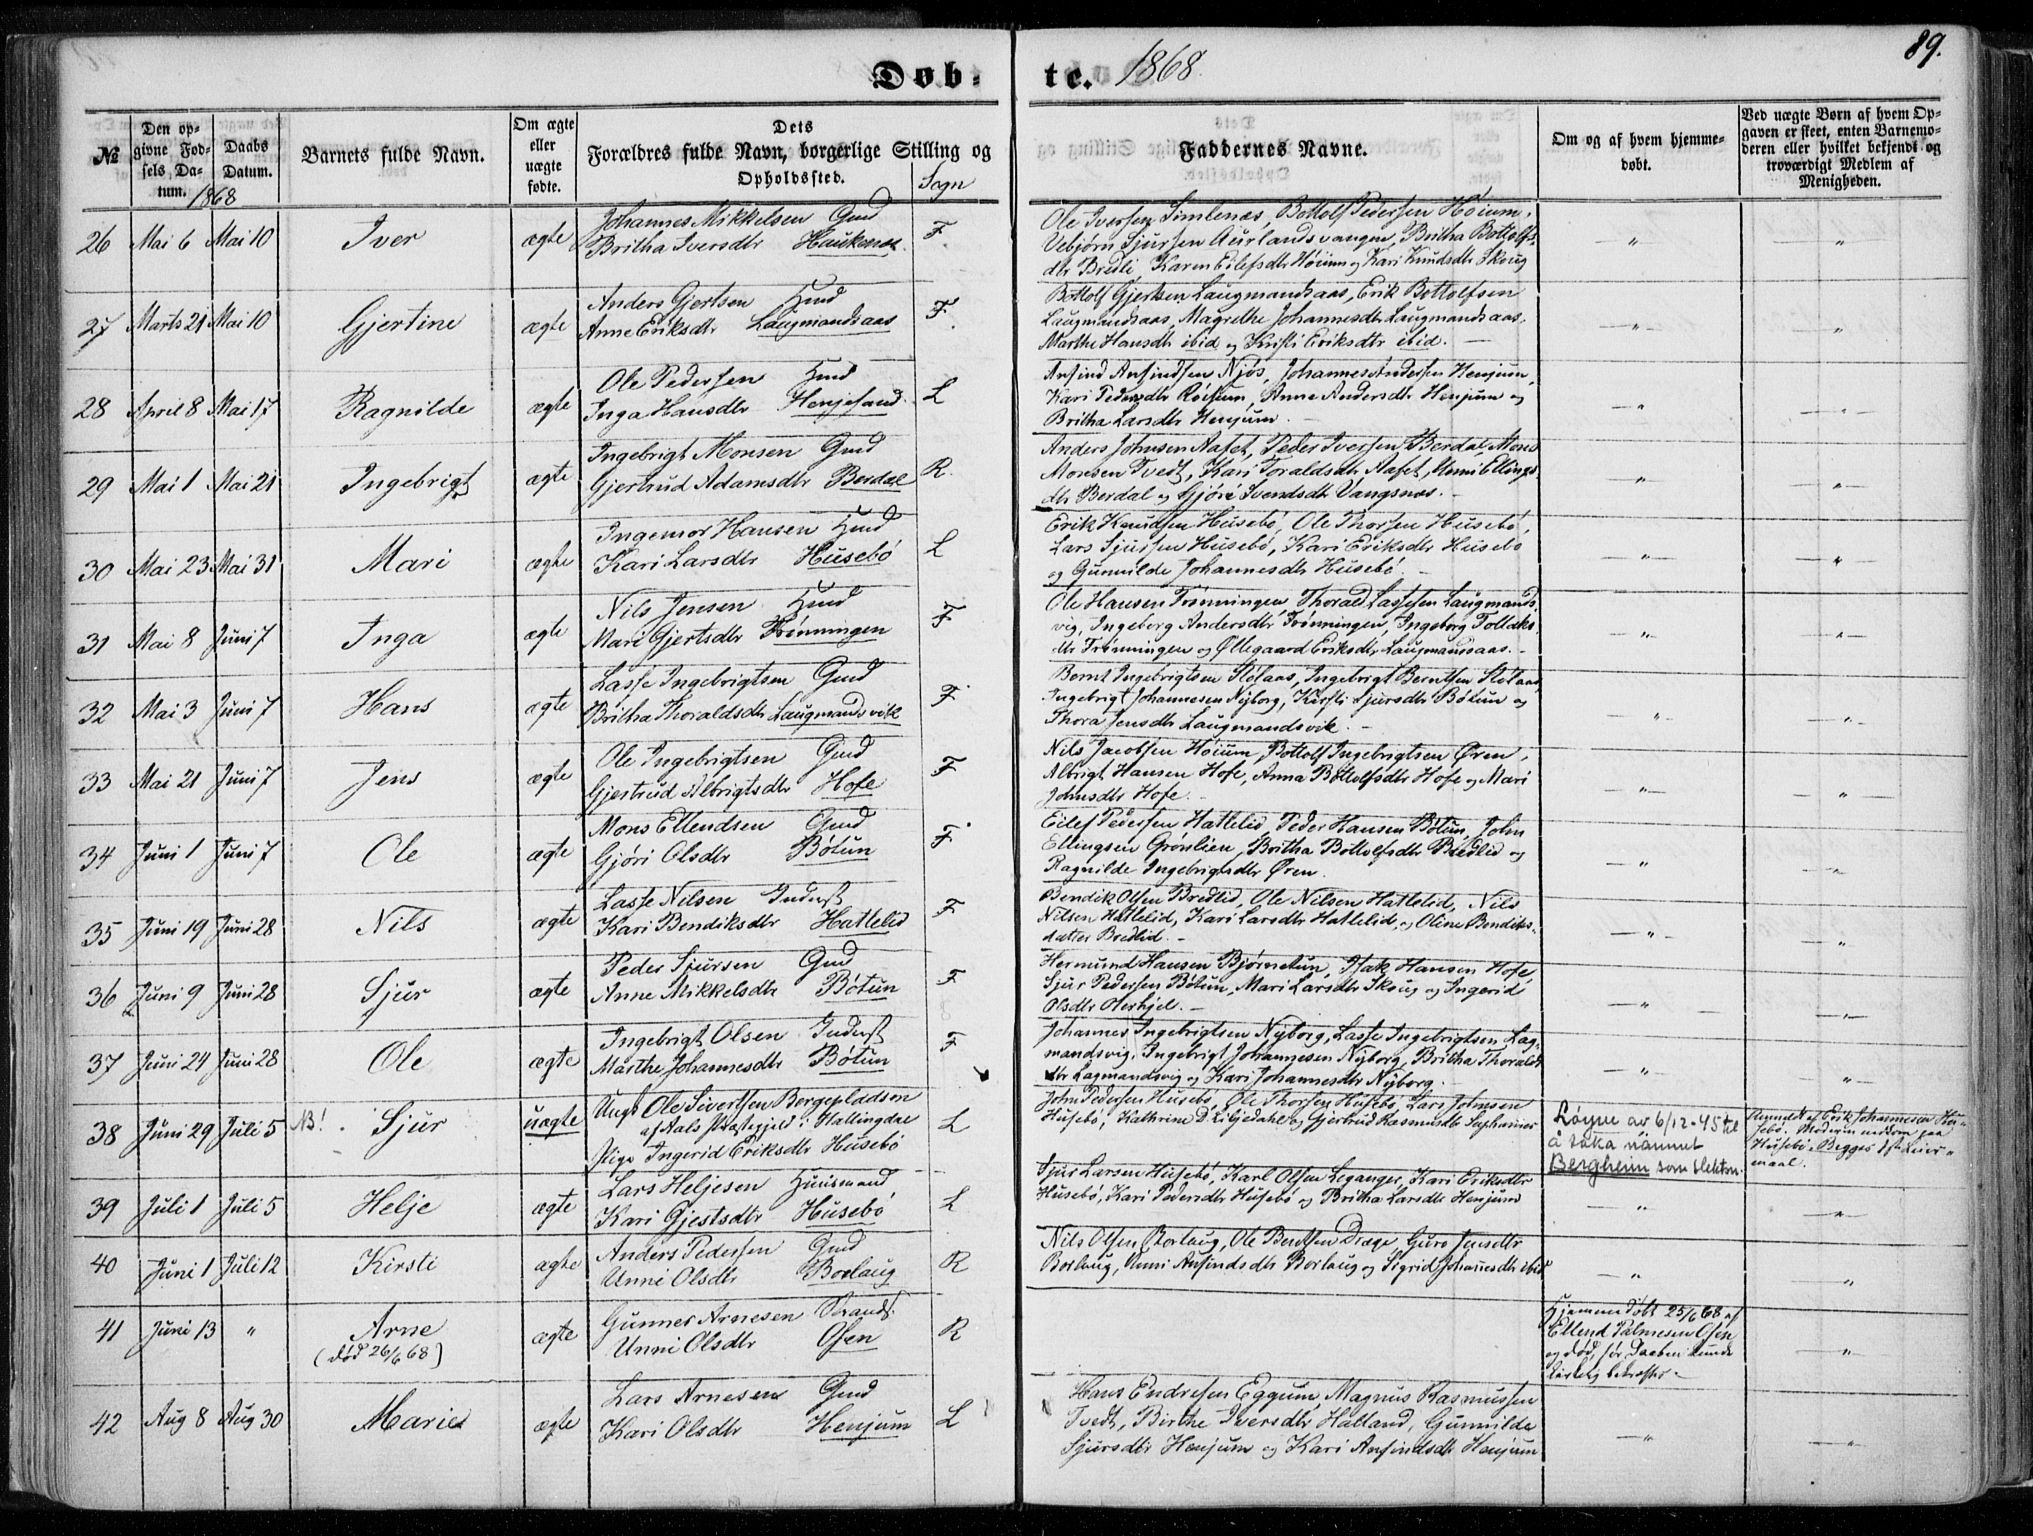 89.
Døb- te. 1868.
№
Den opgivne Fødsels, Datum.
Daabs Datum.
1868
Barnets fulde Navn.
Om ægte eller uægte fødte.
Dets
Forældres fulde Navn, borgerlige Stilling og
Opholdssted.
Sogn
Faddernes Navne.
Om og af hvem hjemmedøbt.
Ved uægte Børn af hvem Opgaven er skeet, enten Barnemoderen eller hvilket bekjendt og troværdigt Medlem af Menigheden.
26 Mai 6 Mai 10 Iver ægte Johannes Mikkelsen Gmd
Britha Iversdtr Haukenæs F.
Ole Iversen Simlenæs, Bottolf Pedersen Høium,
Vebjørn Sjursen Aurlandsvangen, Britha Bottolfs-
dtr Bredli, Karen Eilefsdtr Høium og Kari Knudsdtr Skoug
27 Marts 21 Mai 10 Gjertine ægte Anders Gjertsen Hmd
Anne Eriksdtr Laugmandsaas F.
Bottolf Gjertsen Laugmandsaas, Erik Bottolfsen
Laugmandsaas, Magrethe Johannesdtr Laugmandsaas,
Marthe Hansdtr ibid og Kristi Eriksdtr ibid.
28 April 8 Mai 17 Ragnilde ægte Ole Pedersen Hmd
Inga Hansdtr Henjesand L
Ansind Ansindsen Njøs, Johannes Andersen Henjum,
Kari Pedersdtr Røisum, Anne Andersdtr Henjum og
Britha Larsdtr Henjum
29 Mai 1 Mai 21 Ingebrigt ægte Ingebrigt Monsen Gmd
Gjertrud Adamsdtr Berdal R.
Anders Johnsen Aafet, Peder Iversen Berdal, Mons
Monsen Tvedt, Kari Toraldsdtr Aafet, Unni Ellings-
dtr Berdal og Gjøri Svendsdtr Vangsnæs.
30 Mai 23 Mai 31 Mari ægte Ingemor Hansen Hmd
Kari Larsdtr Husebø L
Erik Knudsen Husebø, Ole Thorsen Husebø,
Lars Sjursen Husebø, Kari Eriksdtr Husebø
og Gunnilde Johannesdtr Husebø.
31 Mai 8 Juni 7 Inga ægte Nils Jensen Hmd
Mari Gjertsdtr Trønningen F
Ole Hansen Trønningen Thorald Lassesen Laugmands-
vig, Ingeborg Andersdtr Trønningen, Ingeborg Tollaks-
dtr Trønningen og Øllegaard Eriksdtr Laugmandsaas.
32 Mai 3 Juni 7 Hans ægte Lasse Ingebrigtsen Gmd
Britha Thoraldsdtr Laugmandsvik F
Bernt Ingebrigtsen Slotaas, Ingebrigt Berntsen Slotaas,
Ingebrigt Johannesen Nyborg, Kirsti Sjursdtr Bøtun og
Thora Jensdtr Laugmandsvik.
33 Mai 21 Juni 7 Jens ægte Ole Ingebrigtsen Gmd
Gjertrud Albrigtsdtr Hofe F
Nils Jacobsen Høium, Bottolf Ingebrigtsen Øren,
Albrigt Hansen Hofe, Anna Bottolfsdtr Hofe og Mari
Johnsdtr Hofe.
34 Juni 1 Juni 7 Ole ægte Mons Ellendsen Gmd
Gjøri Olsdtr Bøtun F
Eilef Pedersen Hattelid, Peder Hansen Bøtun, John
Ellingsen Grønlien, Britha Bottolfsdtr Bredlid og
Ragnilde Ingebrigtsdtr Øren.
35 Juni 19 Juni 28 Nils ægte Lasse Nilsen Inderst
Kari Bendiksdtr Hattelid F
Bendik Olsen Bredlid, Ole Nilsen Hattelid, Nils
Nilsen Hattelid, Kari Larsdtr Hattelid, og Oline Bendiks-
datter Bredlid.
36 Juni 9 Juni 28 Sjur ægte Peder Sjursen Gmd
Anne Mikkelsdtr Bøtun F
Hermund Hansen Bjørnetun, Isak Hansen Hofe
Sjur Pedersen Bøtun, Mari Larsdtr Skoug og Ingerid
Olsdtr
37 Juni 24 Juni 28 Ole ægte Ingebrigt Olsen Inderst
Marthe Johannesdtr Bøtun F
Johannes Ingebrigtsen Nyborg, Lasse Ingebrigtsen Lag-
mandsvig, Ingebrigt Johannesen Nyborg, Britha Thoralds-
dtr Lagmandsvig og Kari Johannesdtr Nyborg.
38 Juni 29 Juli 5 NB! Sjur uægte Ungk Ole Sivertsen Bergepladsen
af Aals Præstegjeld i Hallingdal
Pige Ingerid Eriksdtr Husebø L
John Pedersen Husebø, Ole Thorsen Husebø, Lars Johnsen
Husebø, Kathrine D. Liljedahl og Gjertrud Rasmusdtr
Løyve av 6/12-45 til
å taka nannet
Bergheim som slektsn.
Anmeldt af Erik Johannesen Hu-
sebø. Moderen
Husebø. Begges 1ste Leier-
maal.
39 Juli 1 Juli 5 Helje ægte Lars Heljesen Huusmand
Kari Gjestsdtr Husebø L
Sjur Larsen Husebø, Karl Olsen Leganger, Kari Eriksdtr
Husebø, Kari Pedersdtr Husebø og Britha Larsdtr Henjum
40 Juni 1 Juli 12 Kirsti ægte Anders Pedersen Gmd
Unni Olsdtr Borlaug R
Nils Olsen Borlaug, Ole Bentsen Dræge, Guro Jensdtr
Borlaug, Unni Ansindsdtr Borlaug og Sigrid Johannesdtr ibid
41 Juni 13 " Arne
(død 26/6 68) ægte Gunner Arnesen Strands.
Unni Olsdtr Osen R
Hjemmedøbt 25/6 68 af
Ellend Palmesen Osen
og død, før Daaben kunde
kirkelig bekræftes.
42 Aug 8 Aug 30 Maries ægte Lars Arnesen Gmd
Kari Olsdtr Henjum L
Hans Endresen Eggum, Magnus Rasmussen
Tvedt, Birthe Iversdtr Halland, Gunnilda
Sjursdtr Henjum og Kari Ansindsdtr Henjum